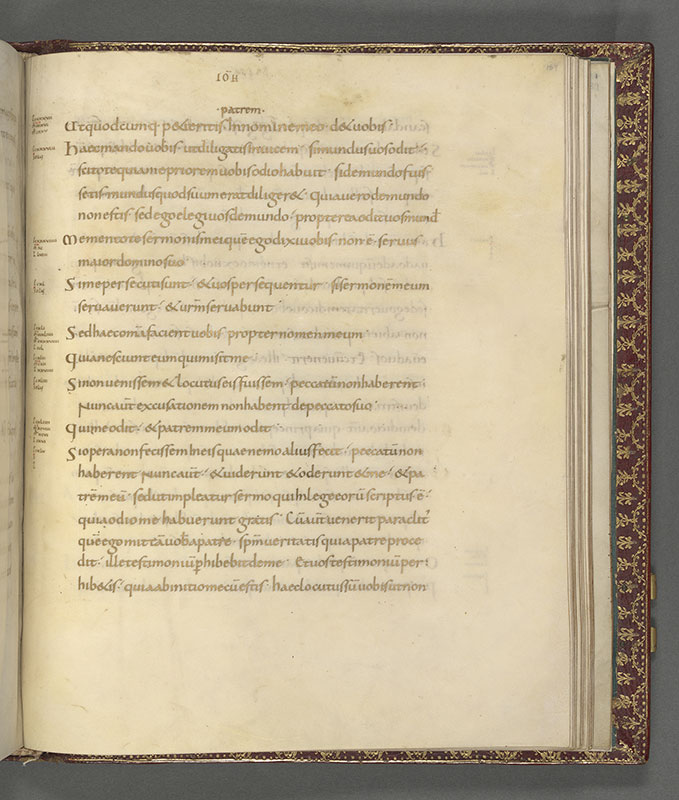 IOH
·patrem·
Ut quodcumq; petieritis In nomine meo det uobis·
Haec mando uobis ut diligatis Inuicem si mundus uos odit·
scitote quia me priorem uobis odio habuit si de mundo fuis
setis· mundus quod suum erat diligeret· quia uero de mundo
non estis sed ego elegi uos de mundo· propterea odit uos mund
Mementote sermonis mei quē ego dixi uobis· non ē seruus
maior domino suo
Si me persecuti sunt· & uos persequentur si sermonem meum
seruauerunt· & urm̄ seruabunt
Sed haec omā facient uobis propter nomen meum·
Quia nesciunt eum qui misit me·
Si non uenissem & locutus eis fuissem· peccatū non haberent·
Nunc aut̄ excusationem non habent de peccato suo·
Qui me odit· & patrem meum odit·
Si opera non fecissem In eis quae nemo alius fecit· peccatū non
haberent Nunc aut̄· & uiderunt & oderunt & me· & pa
trē meū· sed ut impleatur sermo qui In lege eorū scriptus ē·
quia odio me habuerunt gratis· Cū aut̄ uenerit paraclit'
quē ego mittā uob̄ a patre· spm̄ ueritatis qui a patre proce
dit· ille testimoniū phibebit de me Et uos testimoniū per
hibetis· quia ab initio mecū estis haec locutus sū uobis ut non